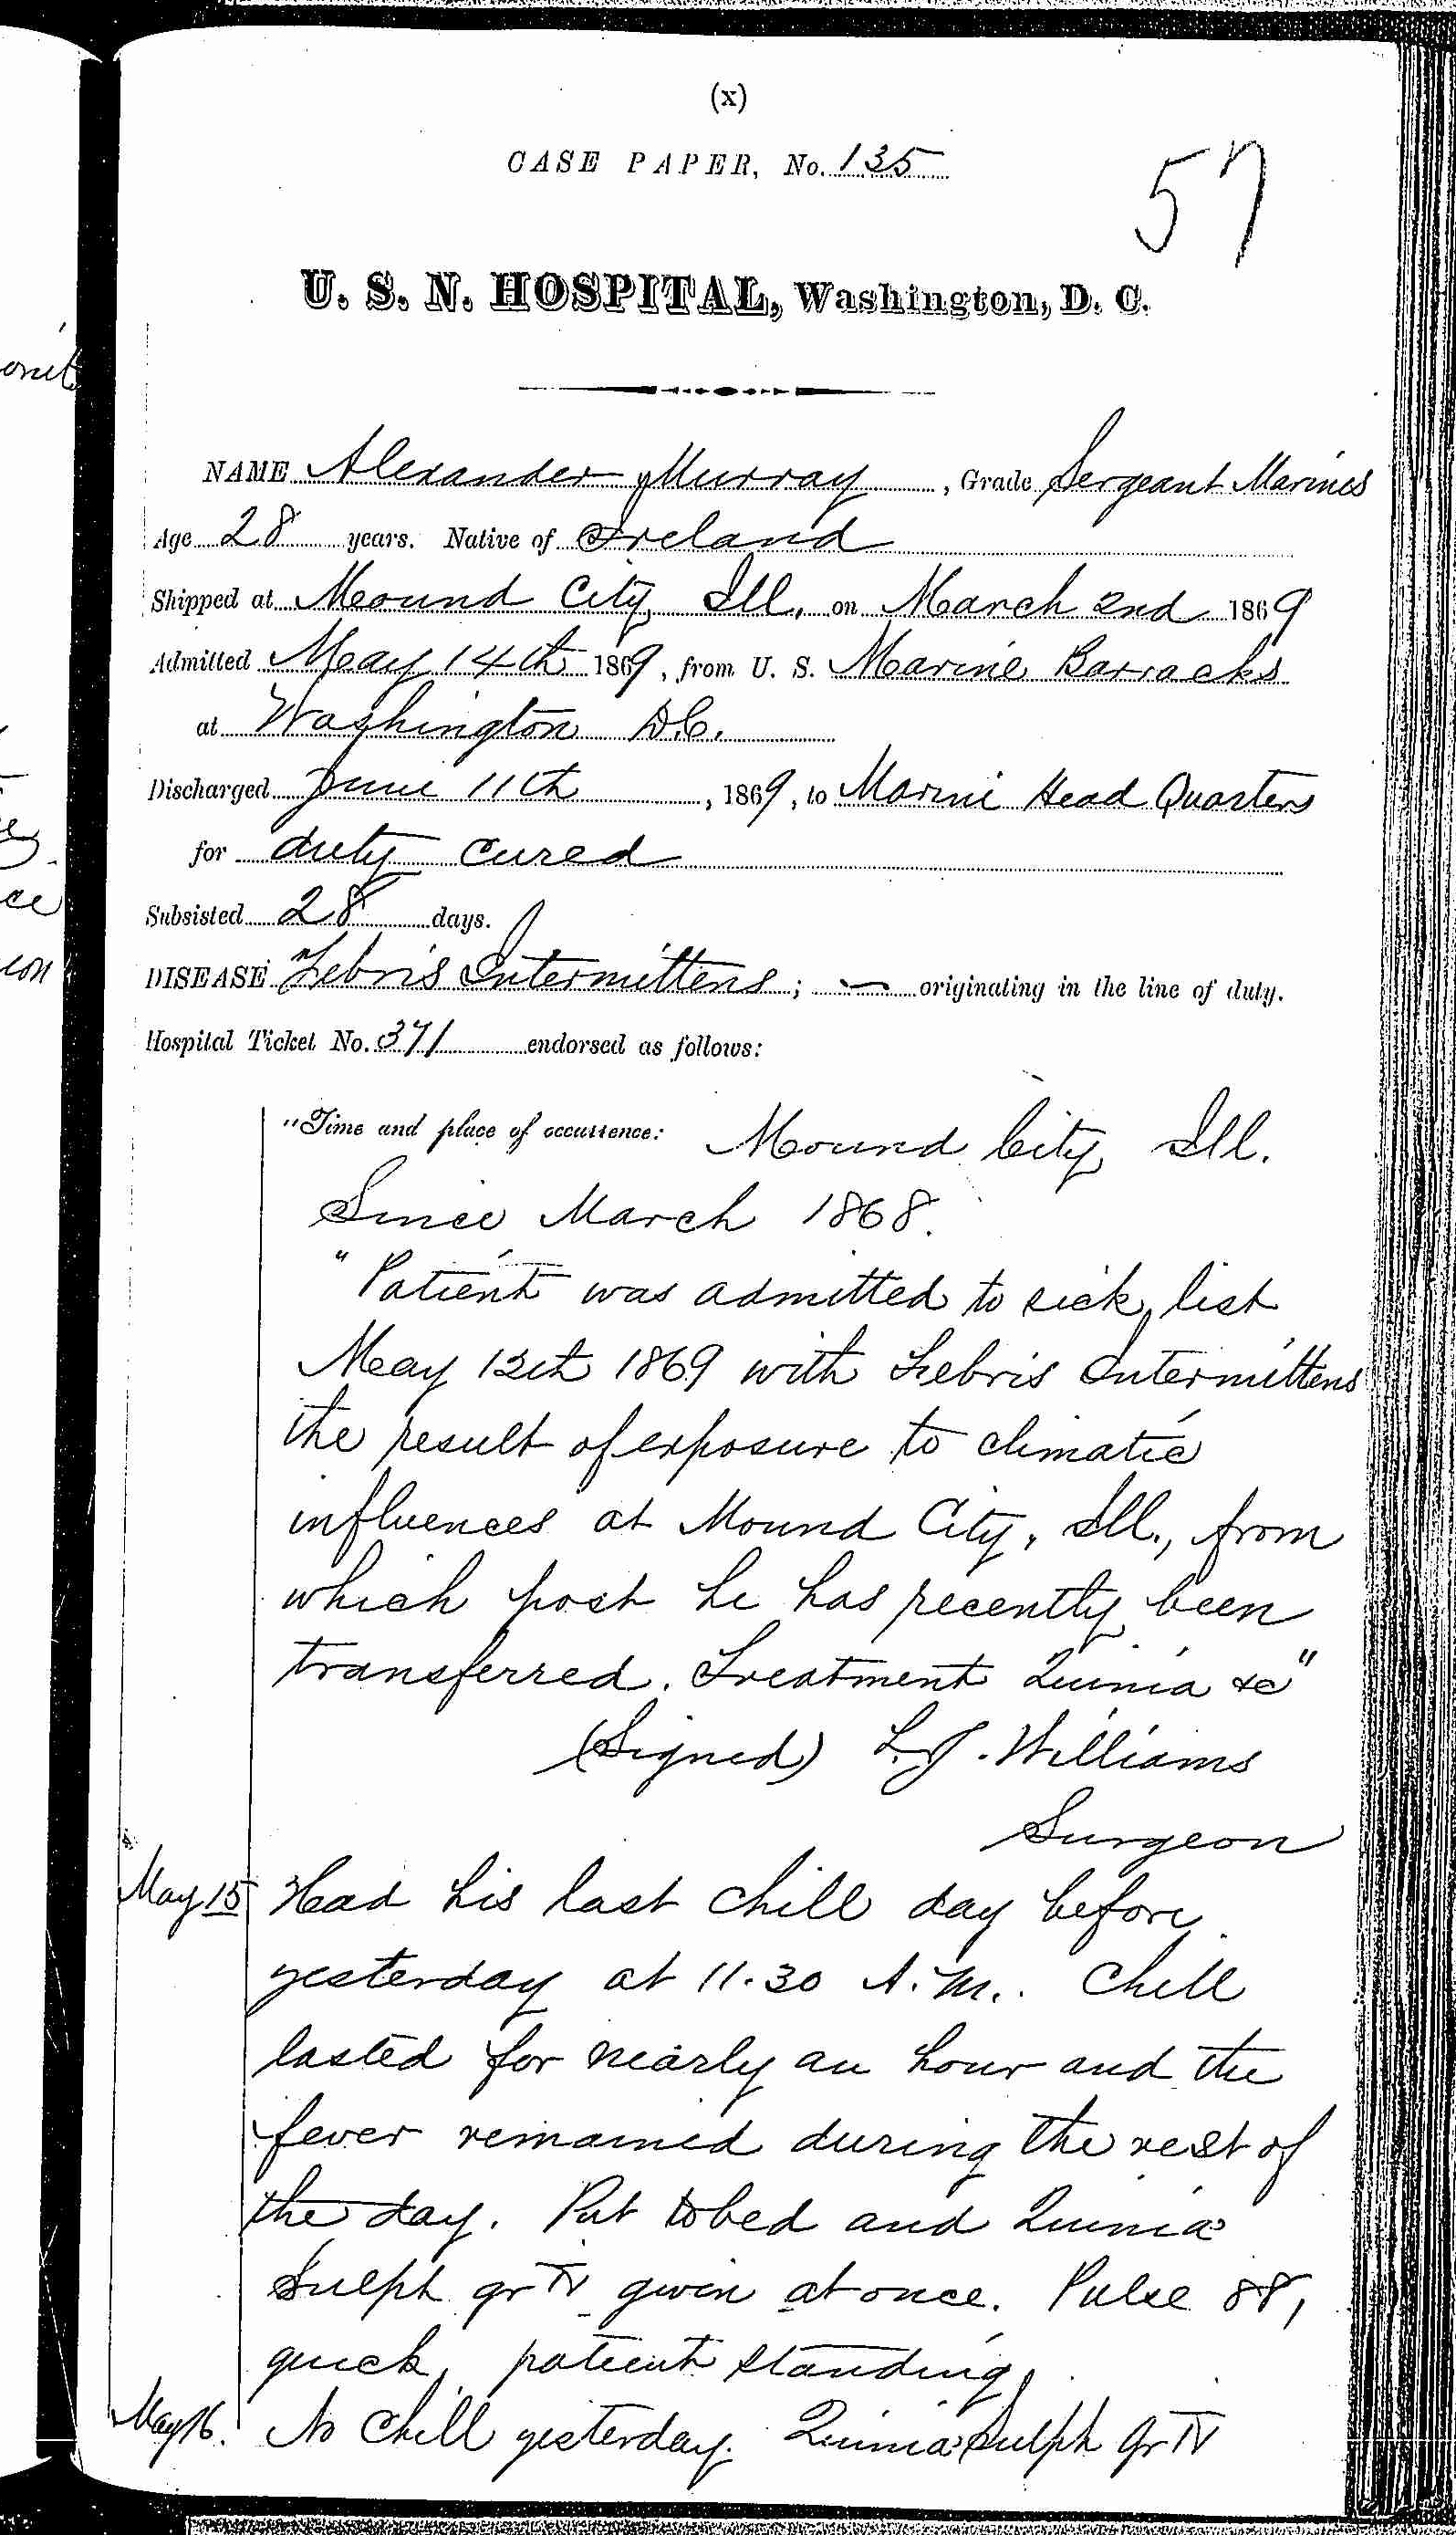 (x)
CASE PAPER, No. 135
57
U. S. N. HOSPITAL, Washington, D. C.
NAME Alexander Murray, Grade Sergeant Marines
Age 28 years. Native of Ireland
Shipped at Mound City, Ill. on March 2nd 1869
Admitted May 14th 1869, from U. S. Marine Barracks
at Washington D.C.
Discharged June 11th, 1869, to Marine Head Quarters
for duty cured
Subsisted 28 days.
DISEASE Febris Intermittens; — originating in the line of duty.
Hospital Ticket No. 371 endorsed as follows:
"Time and place of occurrence: Mound City, Ill.
Since March 1868.
"Patient was admitted to sick list
May 12th 1869 with Febris Intermittens
the result of exposure to climatic
influences at Mound City, Ill., from
which post he has recently been
transferred. Treatment Quinia &c"
(Signed) L. J. Williams
Surgeon
May 15 Had his last chill day before
yesterday at 11.30 A.M.. Chill
lasted for nearly an hour and the
fever remained during the rest of
the day. Put to bed and Quinia
Sulph gr IV given at once. Pulse 88,
quick, patient standing.
May 16. No Chill yesterday. Quinia Sulph gr IV